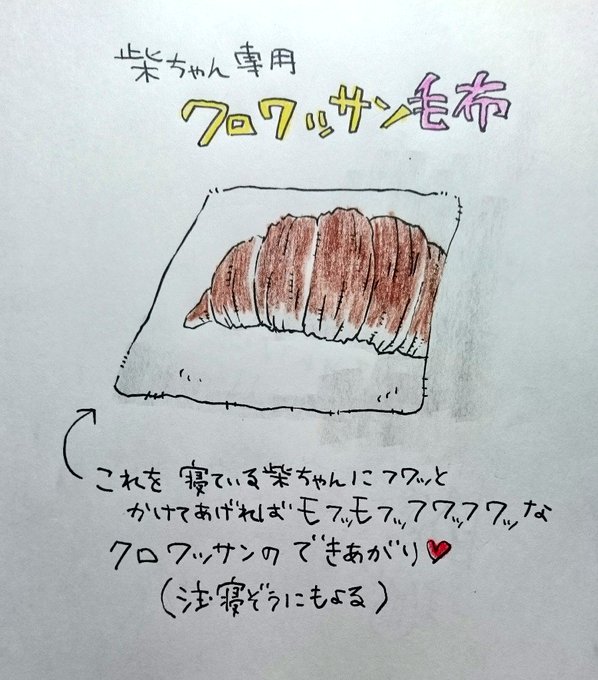 柴ちゃん専用
クロワッサン毛布
これを寝ている柴ちゃんにフワッと
かけてあげればモフッモフッフワッフワッな
クロワッサンのできあがり♥
(注・寝ぞうにもよる)